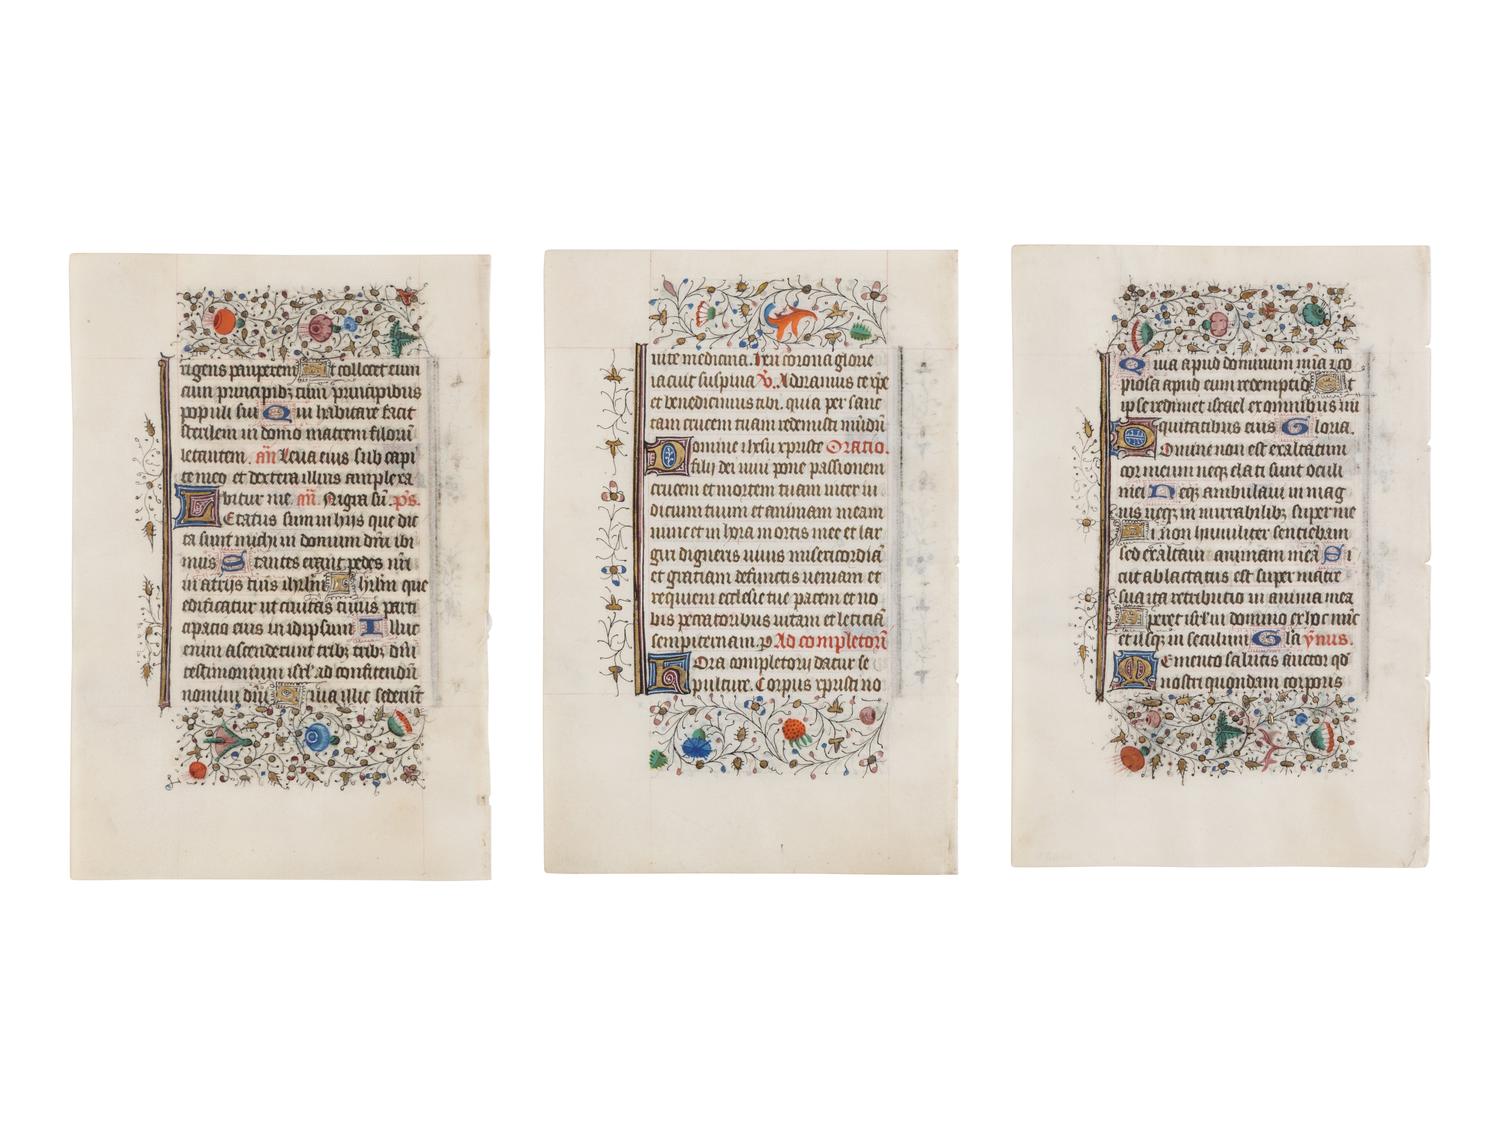 rigens pauperem Et collocet eum
cum principibꝫ cum principibus
populi sui Qui habitare facit
sterilem in domo matrem filiorū
letantem. añ Leva eius sub capi
te meo et dextera illius amplexa
bitur me añ. Nigra sū. ps.
Letatus sum in hijs que dic
ta sunt michi in domum dñi ibi
mus Stantes erant pedes nr̄i
in atrijs tuis ihrl̄m Ihrl̄m que
edificatur ut civitas cuius parti
cipatio eius in idipsum Illuc
enim ascenderunt tribꝫ tribꝫ dñi
testimonium isrl̄ ad confitendū
nomini dñi Quia illic sederūt
vite medicina. Heu corona glorie
iacuit supina ℣. Adoramus te xp̄e
et benedicimus tibi. quia per sanc
tam crucem tuam redemisti mūdū
Domine ihesu xpriste Oratio.
filij dei vivi pone passionem
crucem et mortem tuam inter iu
dicium tuum et animam meam
nunc et in hora mortis mee et lar
giri digneris vivis misericordiā
et gratiam defunctis veniam et
requiem ecclesie tue pacem et no
bis peccatoribus vitam et leticiā
sempiternam. Ad completoriū
Hora completorij datur se
pulture. Corpus xpristi no
Quia apud dominum mia et co
piosa apud eum redemptio Et
ipse redimet israel ex omnibus ini
quitatibus eius Gloria.
Domine non est exaltatum
cor meum neqꝫ elati sunt oculi
mei Neqꝫ ambulavi in mag
nis neqꝫ in mirabilibꝫ super me
Si non humiliter sentiebam
sed exaltavi animam meā Si
cut ablactatus est super matre
sua ita retributio in anima mea
Speret isrl̄ in domino ex hoc nūc
et usqꝫ in seculum Gla ymnus.
Memento salutis auctor qd̄
nostri quondam corporis